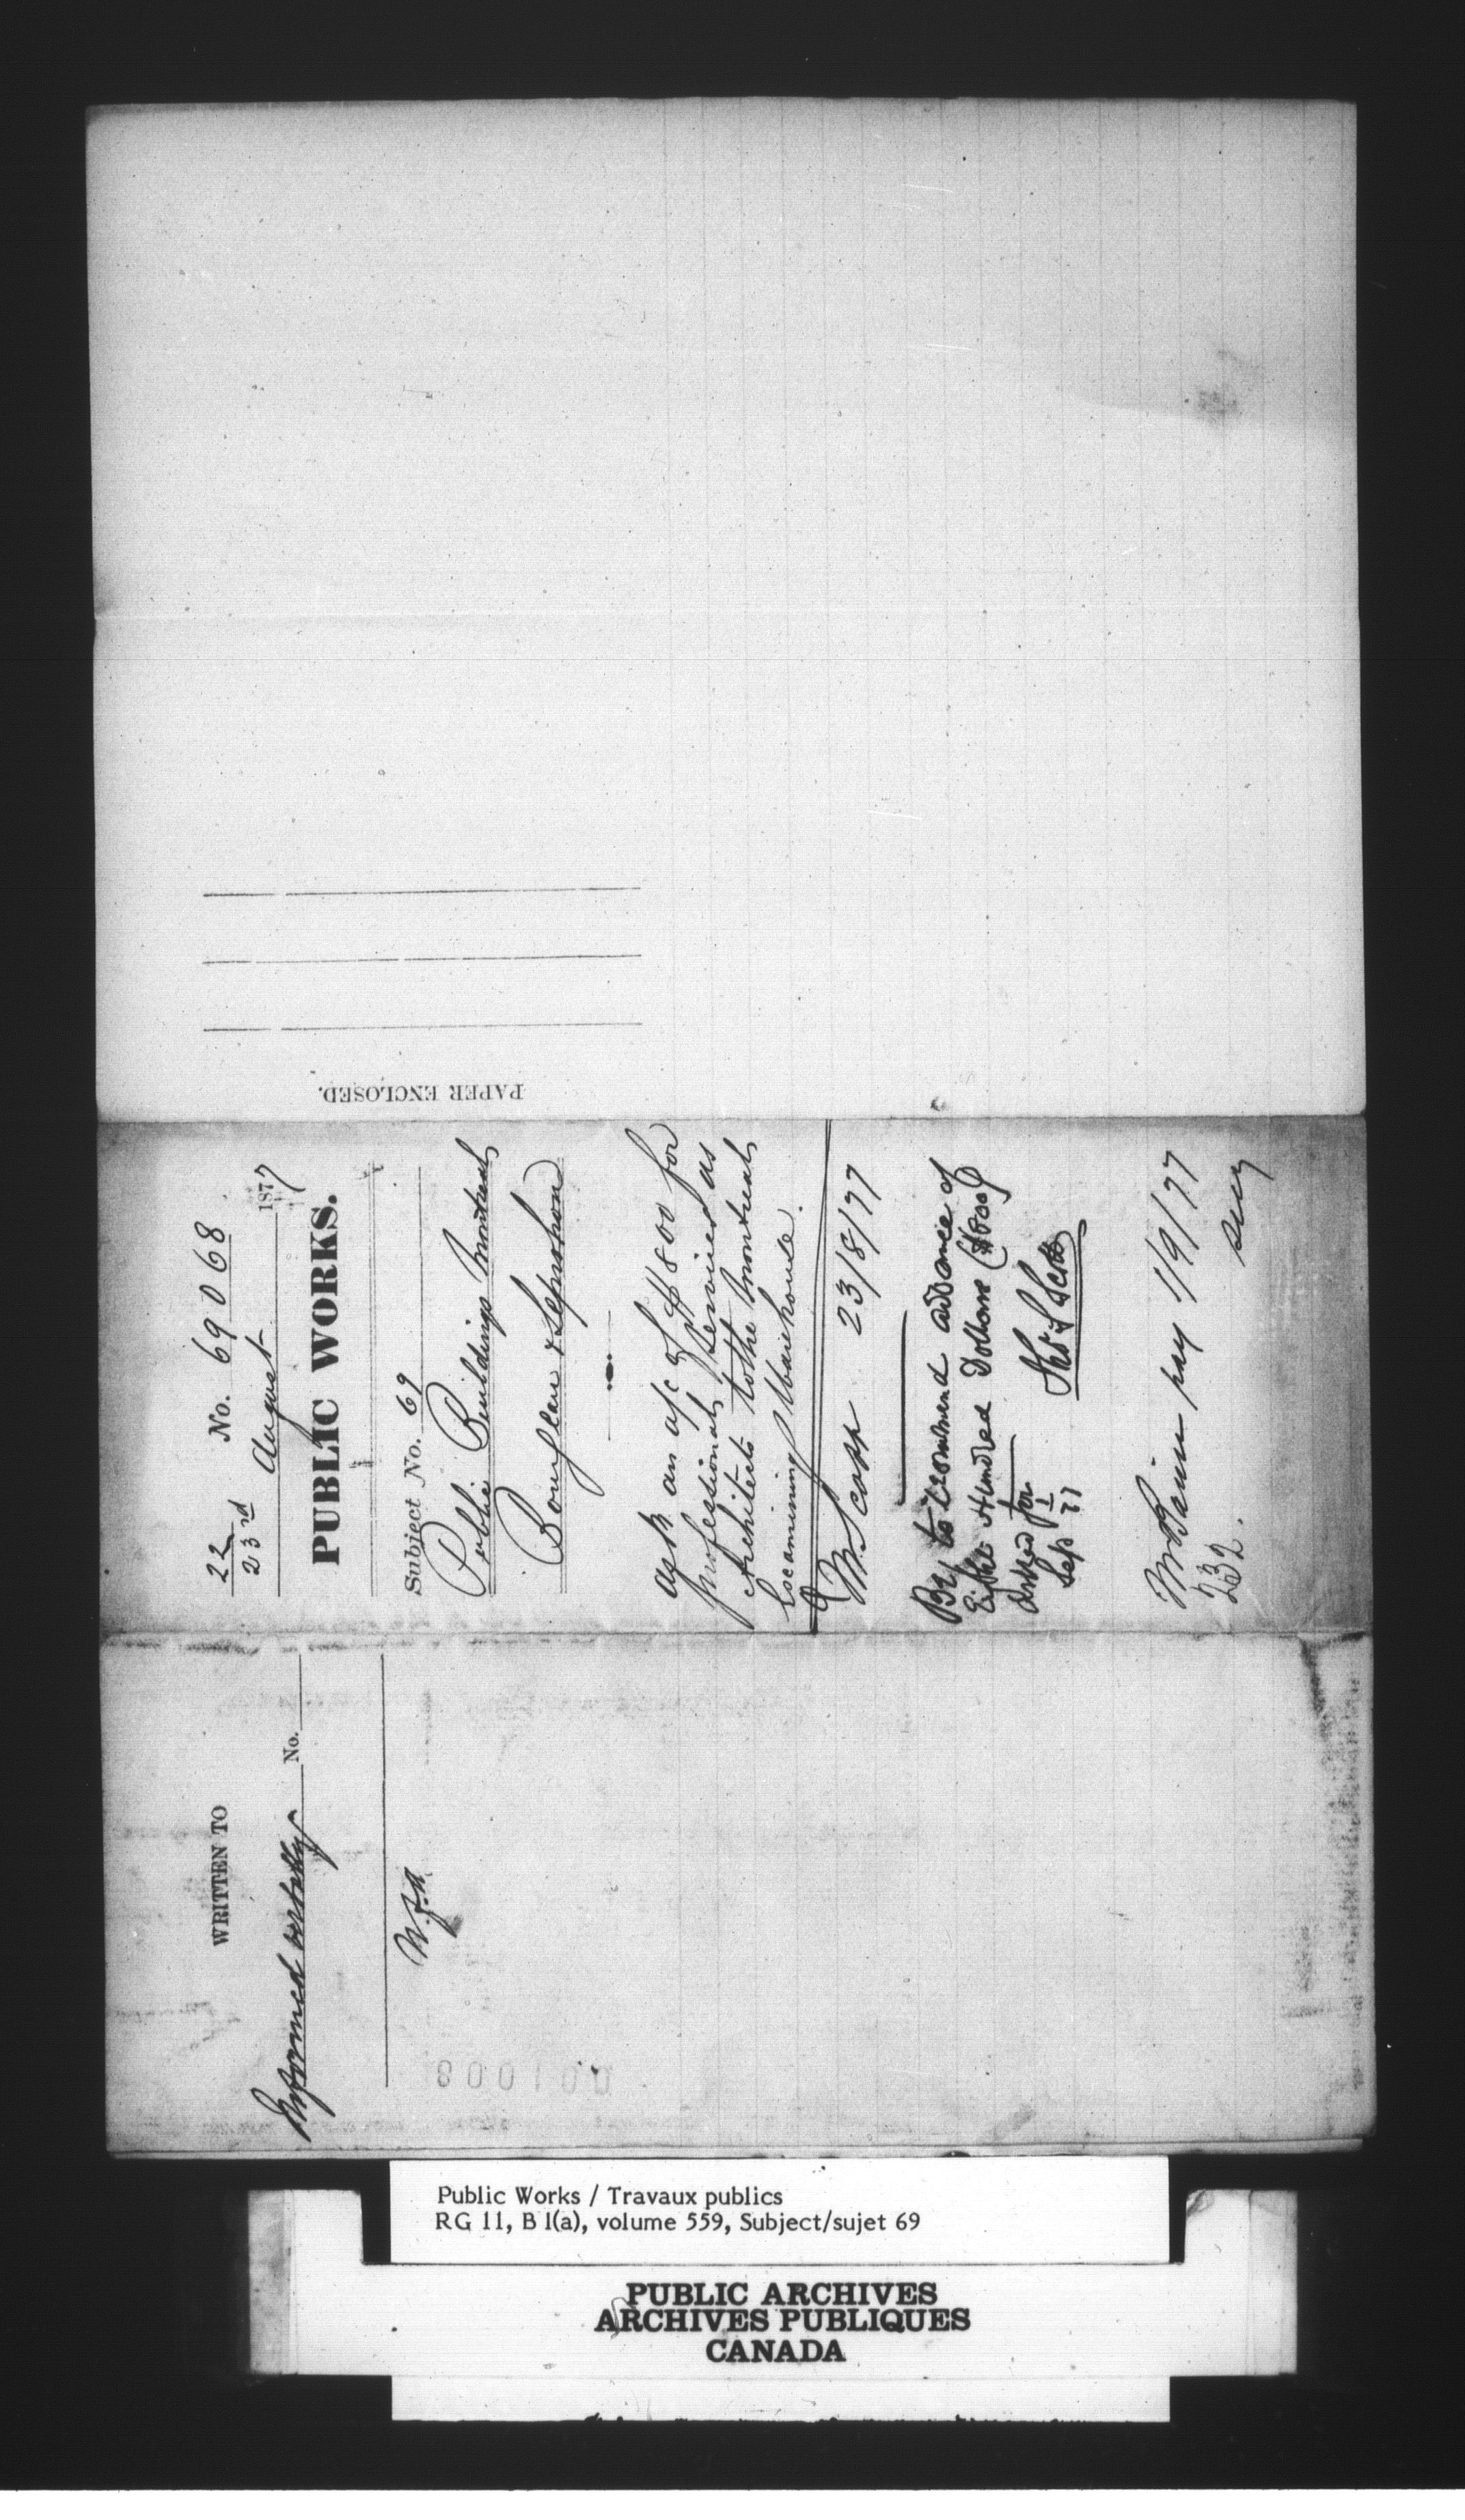 22 No. 69068
23rd August 1877
PUBLIC WORKS.
Subject No. 69
Public Buildings Montreal
Bourgeau & Leprohon
Ask an a/c of $800 for
professional services as
Architects to the Montreal
Examining Warehouse.
Mr Scott 23/8/77
Beg to recommend advance of
Eight Hundred Dollars ($800)
asked for
Sep 1 77
Thos S Scott
Mr Bain pay 1/9/77
232.
PAPER ENCLOSED.
WRITTEN TO
Informed verbally No.
001008
Public Works / Travaux publics
RG 11, B 1(a), volume 559, Subject/sujet 69
PUBLIC ARCHIVES
ARCHIVES PUBLIQUES
CANADA